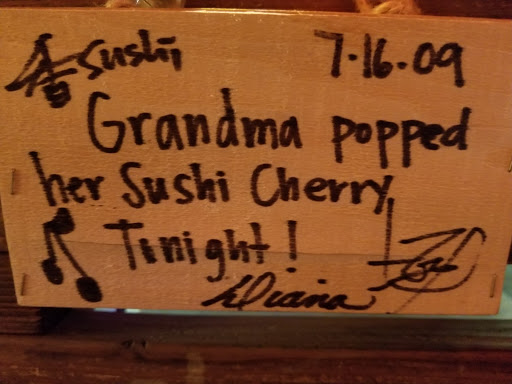 Sushi 7.16.09
Grandma popped
her Sushi Cherry
Tonight!
Diana